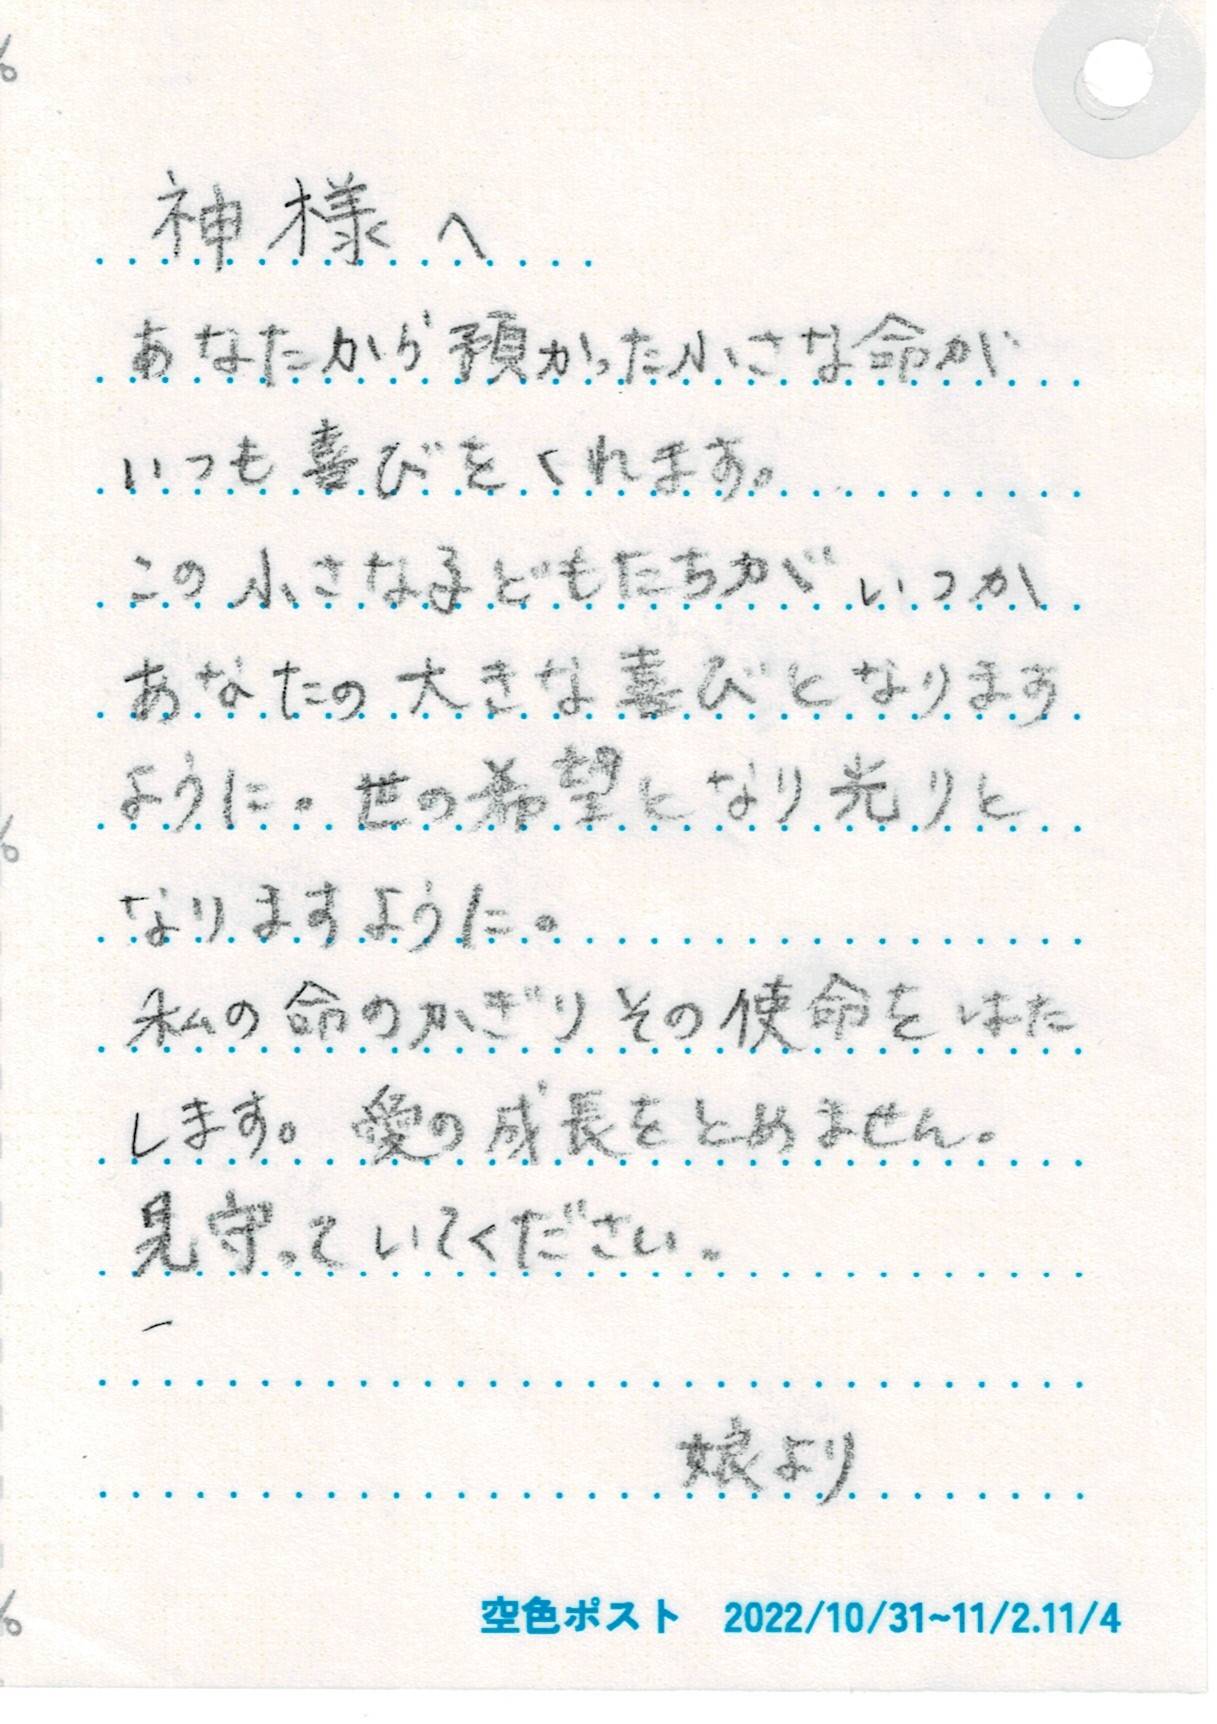 神様へ
あなたから預かった小さな命が
いつも喜びをくれます。
この小さな子どもたちが いつか
あなたの大きな喜びとなります
ように。世の希望となり光りと
なりますように。
私の命のかぎりその使命をはた
します。愛の成長をとめません。
見守っていてください。
娘より
空色ポスト 2022/10/31~11/2.11/4